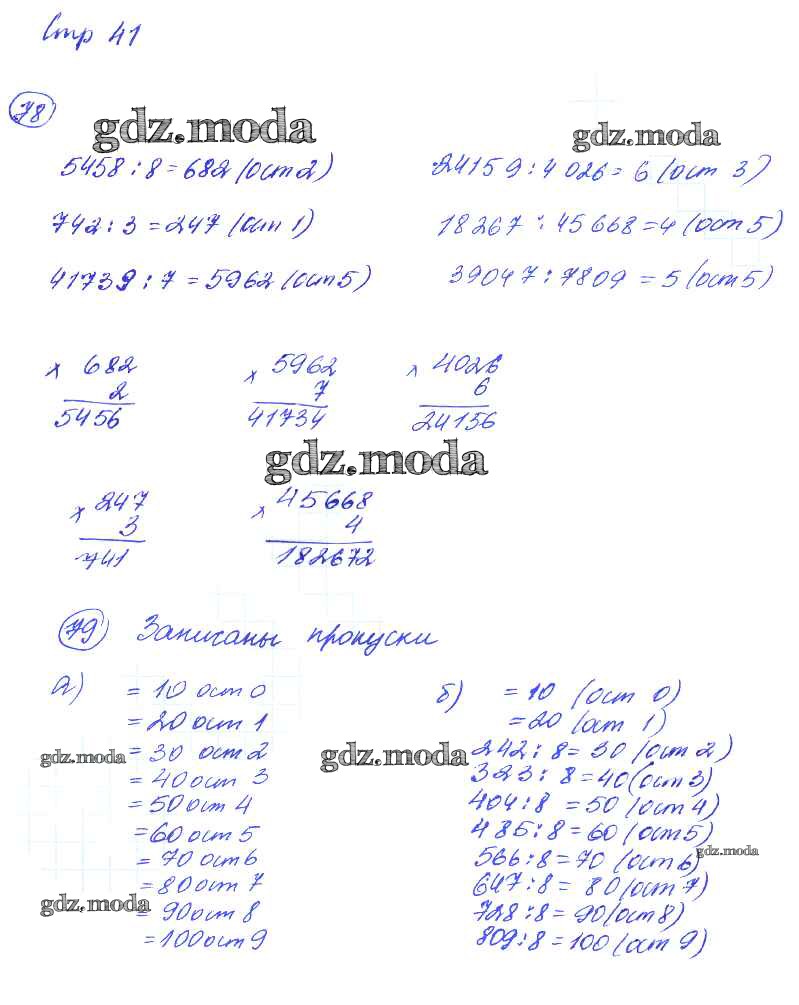 Стр 41
78
gdz.moda gdz.moda
5458:8=682(ост2) 24159:4026=6(ост 3)
742:3=247(ост 1) 18267:45668=4(ост5)
41739:7=5962(ост5) 39047:7809=5(ост5)
x 682 x 5962 x 4026
2 7 6
5456 41734 24156
gdz.moda
x 247 x 45668
3 4
741 182672
79 Записаны пропуски
а) = 10 ост 0 б) = 10 (ост 0)
= 20 ост 1 = 20 (ост 1)
gdz.moda = 30 ост 2 gdz.moda 242:8=30(ост 2)
= 40 ост 3 323:8=40(ост3)
= 50 ост 4 404:8=50(ост 4)
= 60 ост 5 485:8=60(ост5) gdz.moda
= 70 ост 6 566:8=70(ост 6)
= 80 ост 7 647:8=80(ост 7)
gdz.moda = 90 ост 8 728:8=90(ост8)
= 100 ост 9 809:8=100(ост 9)